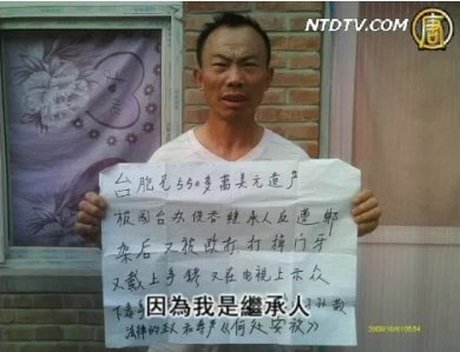 NTDTV.COM
唐
台胞兄550多萬美元遗产
被国台办侵吞继承人反遭绑
架后又被毆打打掉门牙
又戴上手铐又在电视上示众
因為我是繼承人
法律的政权和尊严《何处安放》